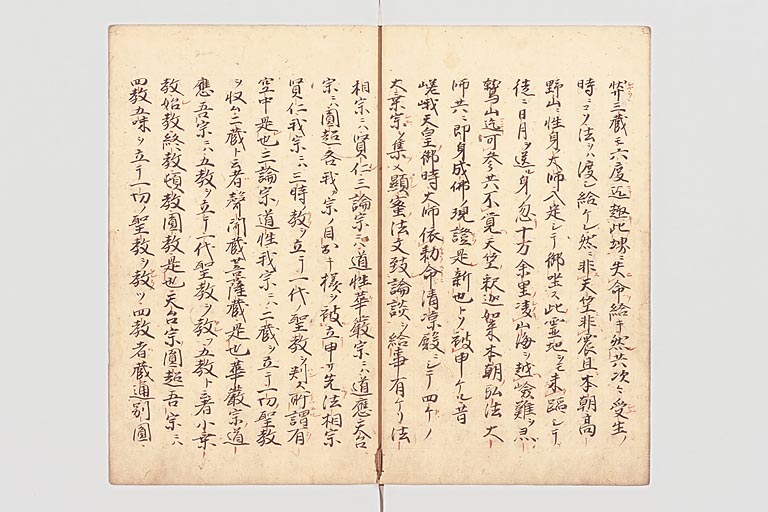 弉三蔵モ六度迄趣此堺ニ失命給キ然共次ニ受生ノ
時ニコソ法ヲハ渡シ給ケレ然ニ非天竺非震旦本朝高
野山ニ性身ノ大師入定シテ御坐ス此霊地ヲモ未踏シテ
徒ニ日月ヲ送ル身ノ忽十万余里凌山海ヲ越嶮難ヲ
鷲山迄可参共不覚天竺釈迦如来本朝弘法大
師共ニ即身成佛ノ現證是新也トソ被申ケル昔
嵯峨天皇御時大師依勅命清凉殿ニシテ四ケノ
大乗宗ヲ集メ顯蜜法文致論談ヲ給事有ケリ法
相宗ニハ賢仁三論宗ニハ道性華嚴宗ニハ道應天台
宗ニハ圓超各我カ宗ノ目出キ様ヲ被立申サ先法相宗
賢仁我宗ニハ三時ノ教ヲ立テ一代ノ聖教ヲ判ス所謂有
空中是也三論宗道性我宗ニハ二蔵ヲ立テ一切聖教
ヲ収ム二蔵ト云者聲聞蔵菩薩蔵是也華嚴宗道
應吾宗ニハ五教ヲ立テ一代聖教ヲ教フ五教ト云者小乗
教始教終教頓教圓教是也天台宗圓超吾宗ニハ
四教五味ヲ立テ一切ノ聖教ヲ教ツ四教者蔵通別圓ニ